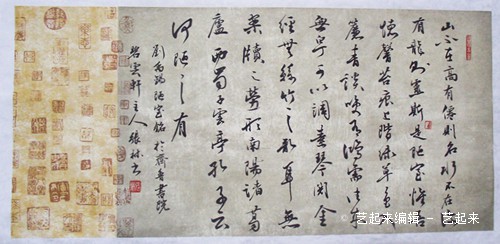 山不在高有僊則名水不在深
有龍則靈斯是陋室惟吾
德馨苔痕上階綠草色
簾青談笑有鴻儒往來
無白丁可以調素琴閱金
經無絲竹之亂耳無
案牘之勞形南陽諸葛
廬西蜀子雲亭孔子云
何陋之有
劉禹錫陋室銘於齊魯書院
碧雲軒主人張林書
艺起来编辑 - 艺起来